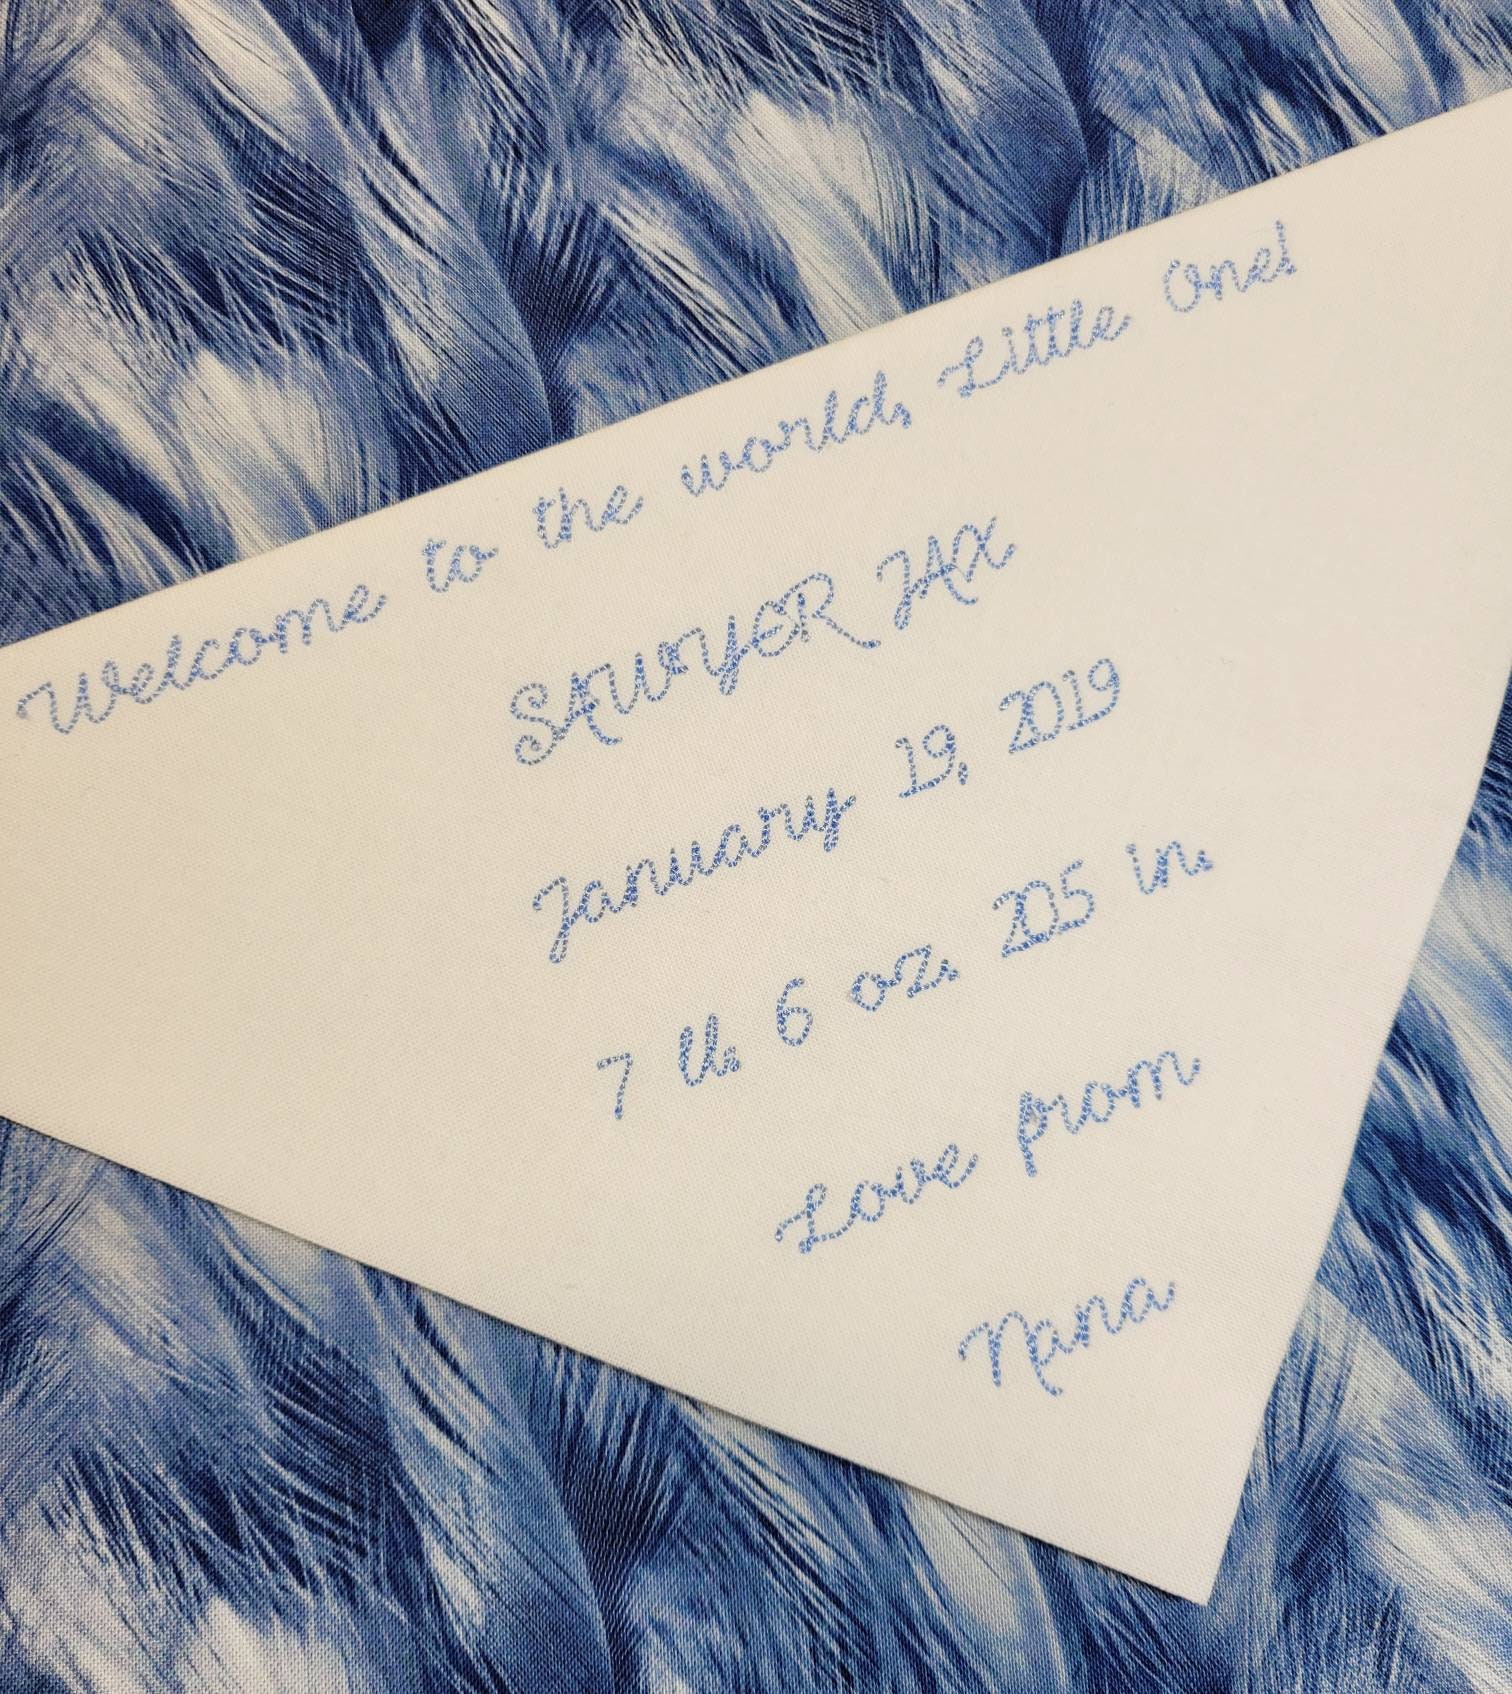 Welcome to the world, Little One!
SAWYER JAX
January 19, 2019
7 lb. 6 oz. 20.5 in.
Love from
Nana